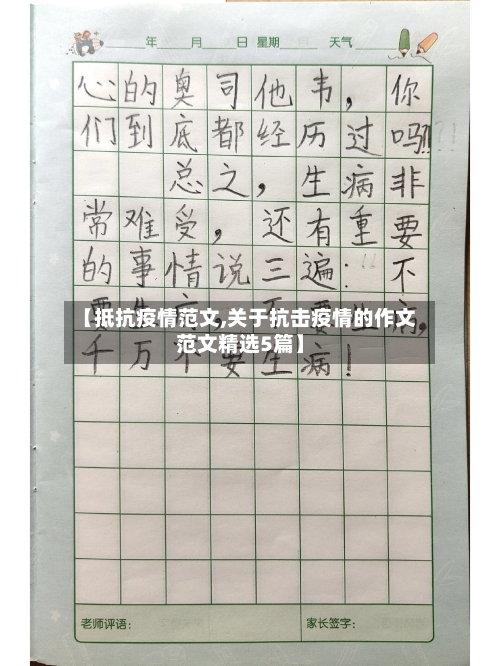 年 月 日 星期 天气
心的奥司他韦，你
们到底都经历过吗!!?!
总之，生病非
常难受，还有重要
的事情说三遍：“不
【抵抗疫情范文,关于抗击疫情的作文
范文精选5篇】
千万不要生病！
老师评语： 家长签字：